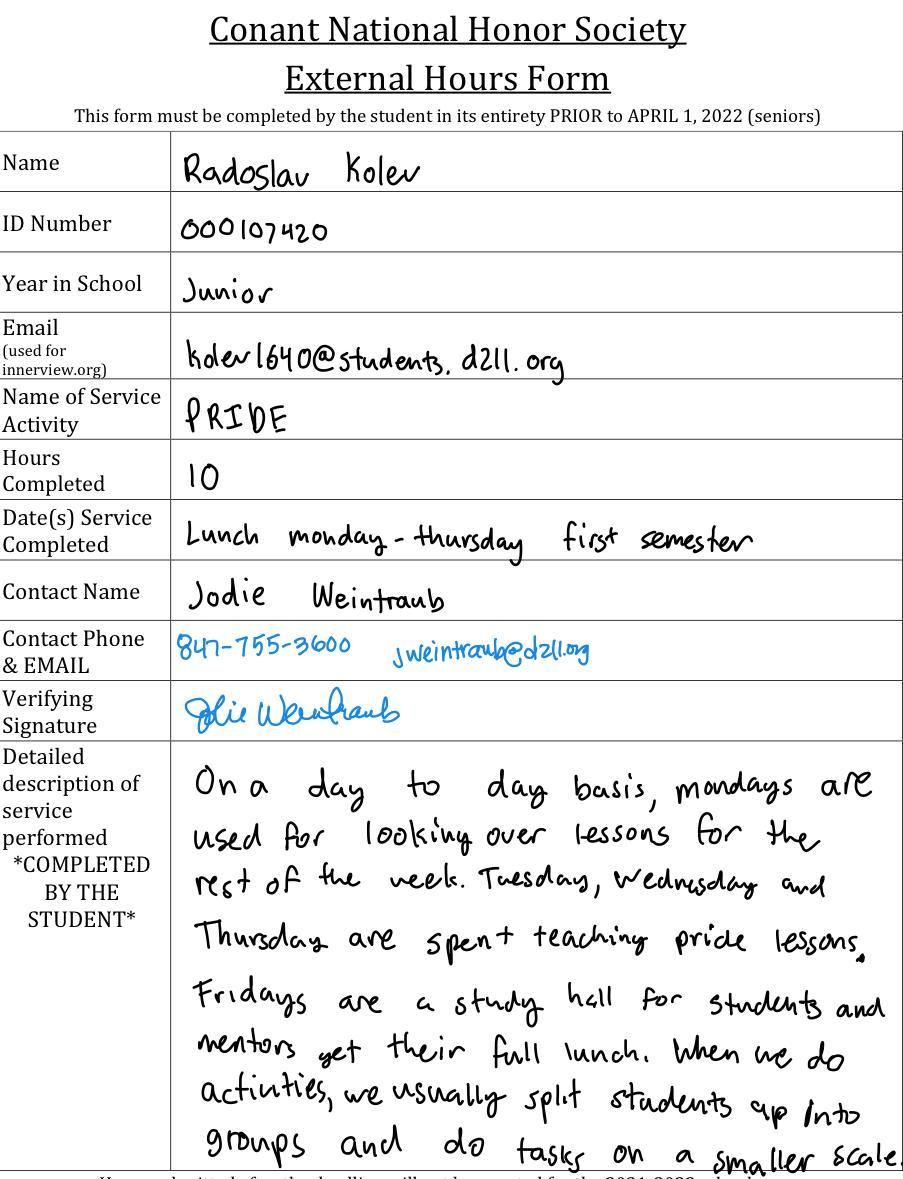 Conant National Honor Society
External Hours Form
This form must be completed by the student in its entirety PRIOR to APRIL 1, 2022 (seniors)
Name Radoslav Kolev
ID Number 000107420
Year in School Junior
Email
(used for
innerview.org) kolev1640@students.d211.org
Name of Service
Activity PRIDE
Hours
Completed 10
Date(s) Service
Completed Lunch monday-thursday first semester
Contact Name Jodie Weintraub
Contact Phone
& EMAIL 847-755-3600 jweintraub@d211.org
Verifying
Signature Jodie Weintraub
Detailed
description of
service
performed
*COMPLETED
BY THE
STUDENT*
On a day to day basis, mondays are
used for looking over lessons for the
rest of the week. Tuesday, Wednesday and
Thursday are spent teaching pride lessons.
Fridays are a study hall for students and
mentors get their full lunch. When we do
activities, we usually split students up into
groups and do tasks on a smaller scale.